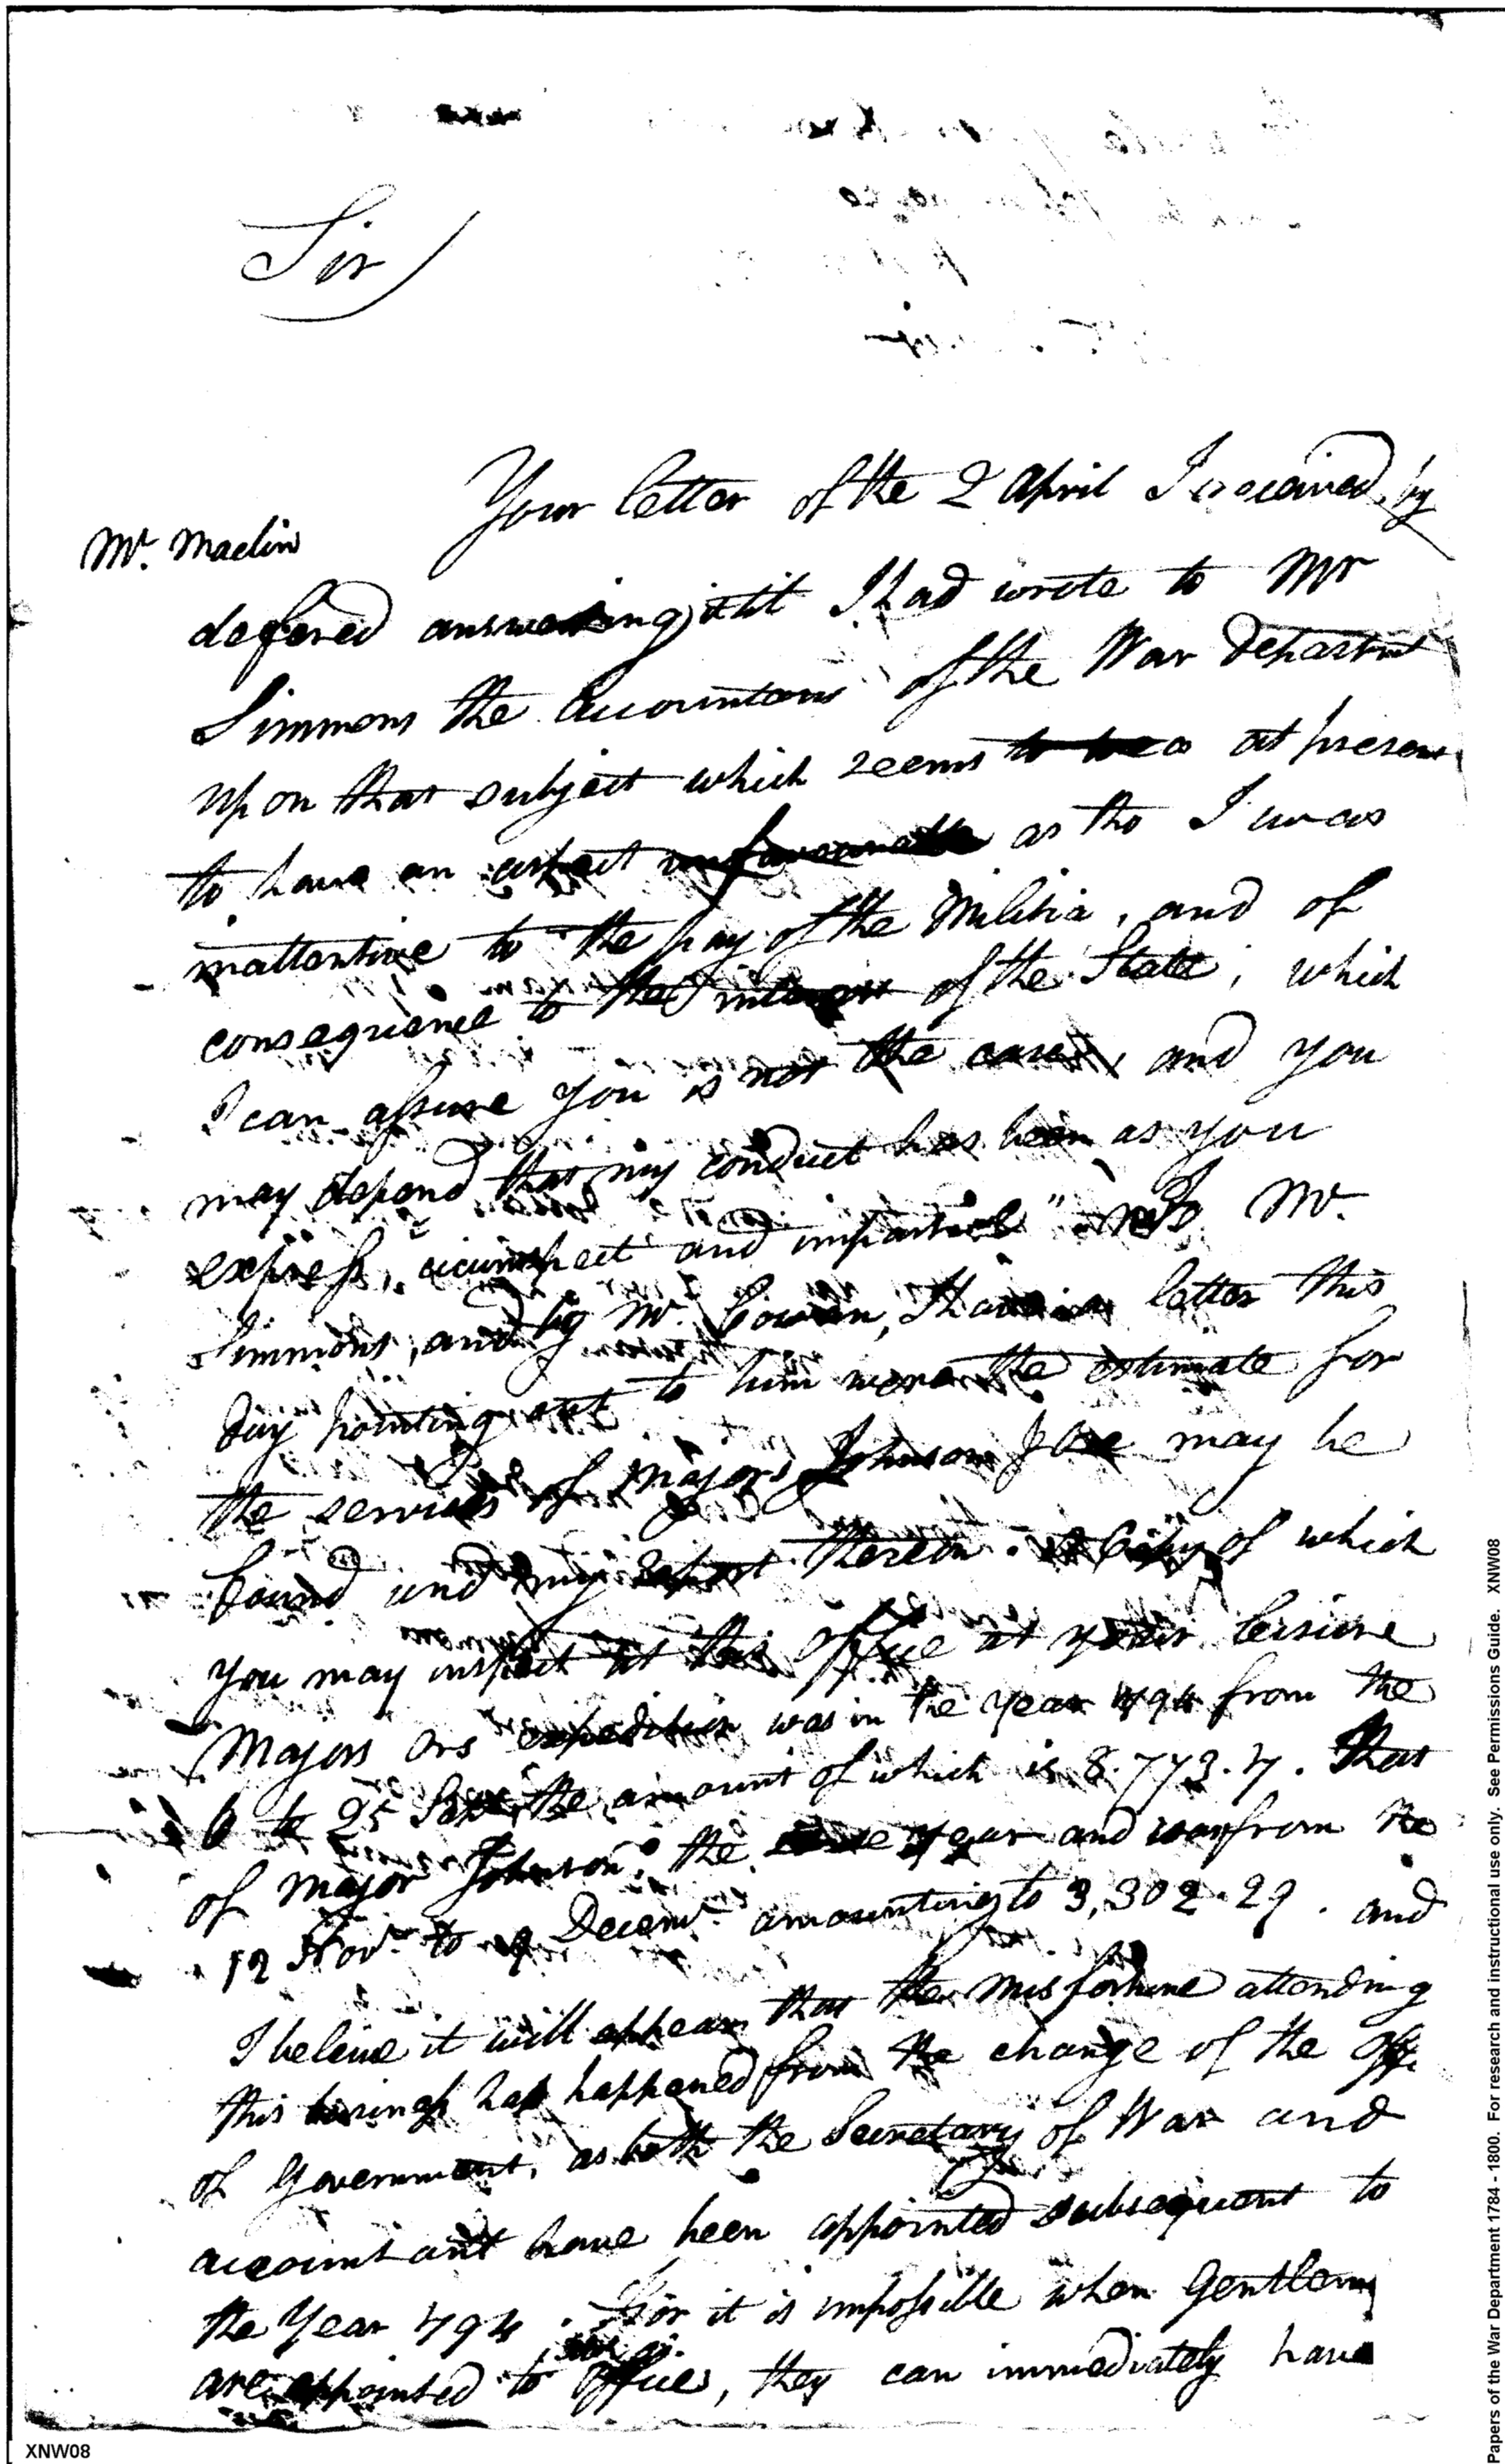 Sir
Your letter of the 2 April I received by
Mr. Maclin
defered answering it I had wrote to Mr
Simmons the accountant of the War Department
upon that subject which seems at present
to have an aspect as tho I was
inattentive to the pay of the Militia, and of
consequence to the interest of the State, which
I can assure you is not the case, and you
may depend that my conduct has been as you
express, "circumspect and impartial" Mr.
Simmons, and by Mr. Cowan, letter this
day pointing out to him were the estimate for
the services of Majors Johnson & Ore may be
found and my report thereon. a Copy of which
you may inspect at this office at your leisure
Majors Ors expedition was in the year 1794 from the
6 to 25 Sepr. the amount of which is 8.773.7. That
of Major Johnson, the same year and was from the
12 Novr. to 9 Decemr. amounting to 3,302.29. and
I beleive it will appear that the misfortune attending
this business has happened from the change of the
of Government, as both the Secretary of War and
accountant have been appointed subsequent to
the Year 1794. For it is impossible when Gentlemen
are appointed to offices, they can immediately have
XNW08
Papers of the War Department 1784 - 1800. For research and instructional use only. See Permissions Guide. XNW08